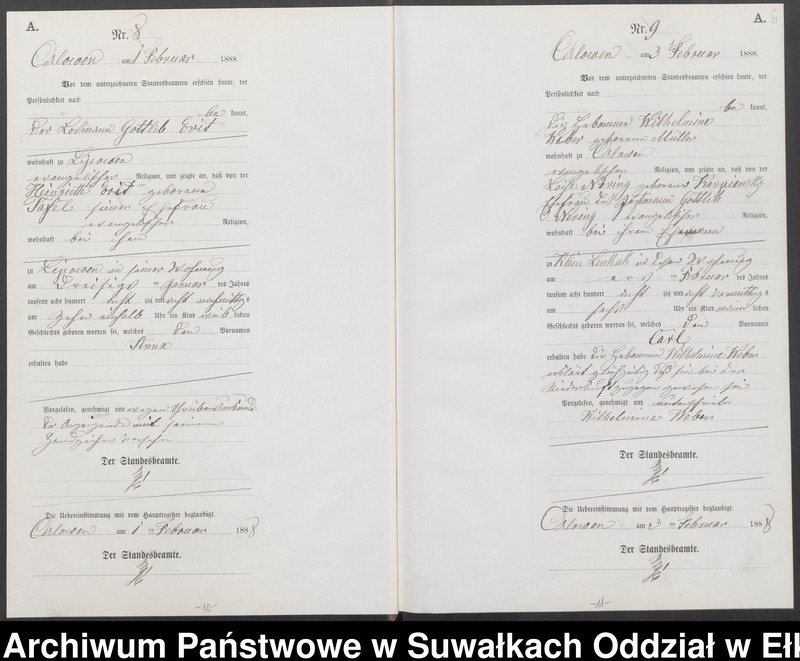 A.
Nr. 8
Orlowen am 1 Februar 1888.
Vor dem unterzeichneten Standesbeamten erschien heute, der
Persönlichkeit nach
be kannt,
der Losmann Gottlieb
wohnhaft zu
evangelischer Religion, und zeigte an, daß von der
Henriette geborene
seiner Ehefrau
evangelischer Religion,
wohnhaft bei ihm
zu in seiner Wohnung
am Januar des Jahres
tausend acht hundert acht zig und acht nachmittags
um Uhr ein Kind weib lichen
Geschlechts geboren worden sei, welches den Vornamen
Anna
erhalten habe
Vorgelesen, genehmigt und wegen
der Anzeigende mit seinem
Handzeichen versehen
Der Standesbeamte.
Die Uebereinstimmung mit dem Hauptregister beglaubigt.
Orlowen am 1 ten Februar 1888
Der Standesbeamte.
-10-
A. 6
Nr. 9
Orlowen am 3 Februar 1888.
Vor dem unterzeichneten Standesbeamten erschien heute, der
Persönlichkeit nach
be kannt,
die Hebamme Wilhelmine
Weber geborene Müller
wohnhaft zu Orlowen
evangelischer Religion, und zeigte an, daß von der
geborene
Ehefrau des Gottlieb
evangelischer Religion,
wohnhaft bei ihrem Ehemann
zu Klein Lenkuk in dessen Wohnung
am ten Februar des Jahres
tausend acht hundert acht zig und acht vormittags
um Uhr ein Kind männ lichen
Geschlechts geboren worden sei, welches den Vornamen
Carl
erhalten habe die Hebamme Wilhelmine Weber
erklärt gleichzeitig daß sie bei der
Niederkunft zugegen gewesen sei
Vorgelesen, genehmigt und unterschrieben
Wilhelmine Weber
Der Standesbeamte.
Die Uebereinstimmung mit dem Hauptregister beglaubigt.
Orlowen am 3 ten Februar 1888
Der Standesbeamte.
-11-
Archiwum Państwowe w Suwałkach Oddział w Ełk